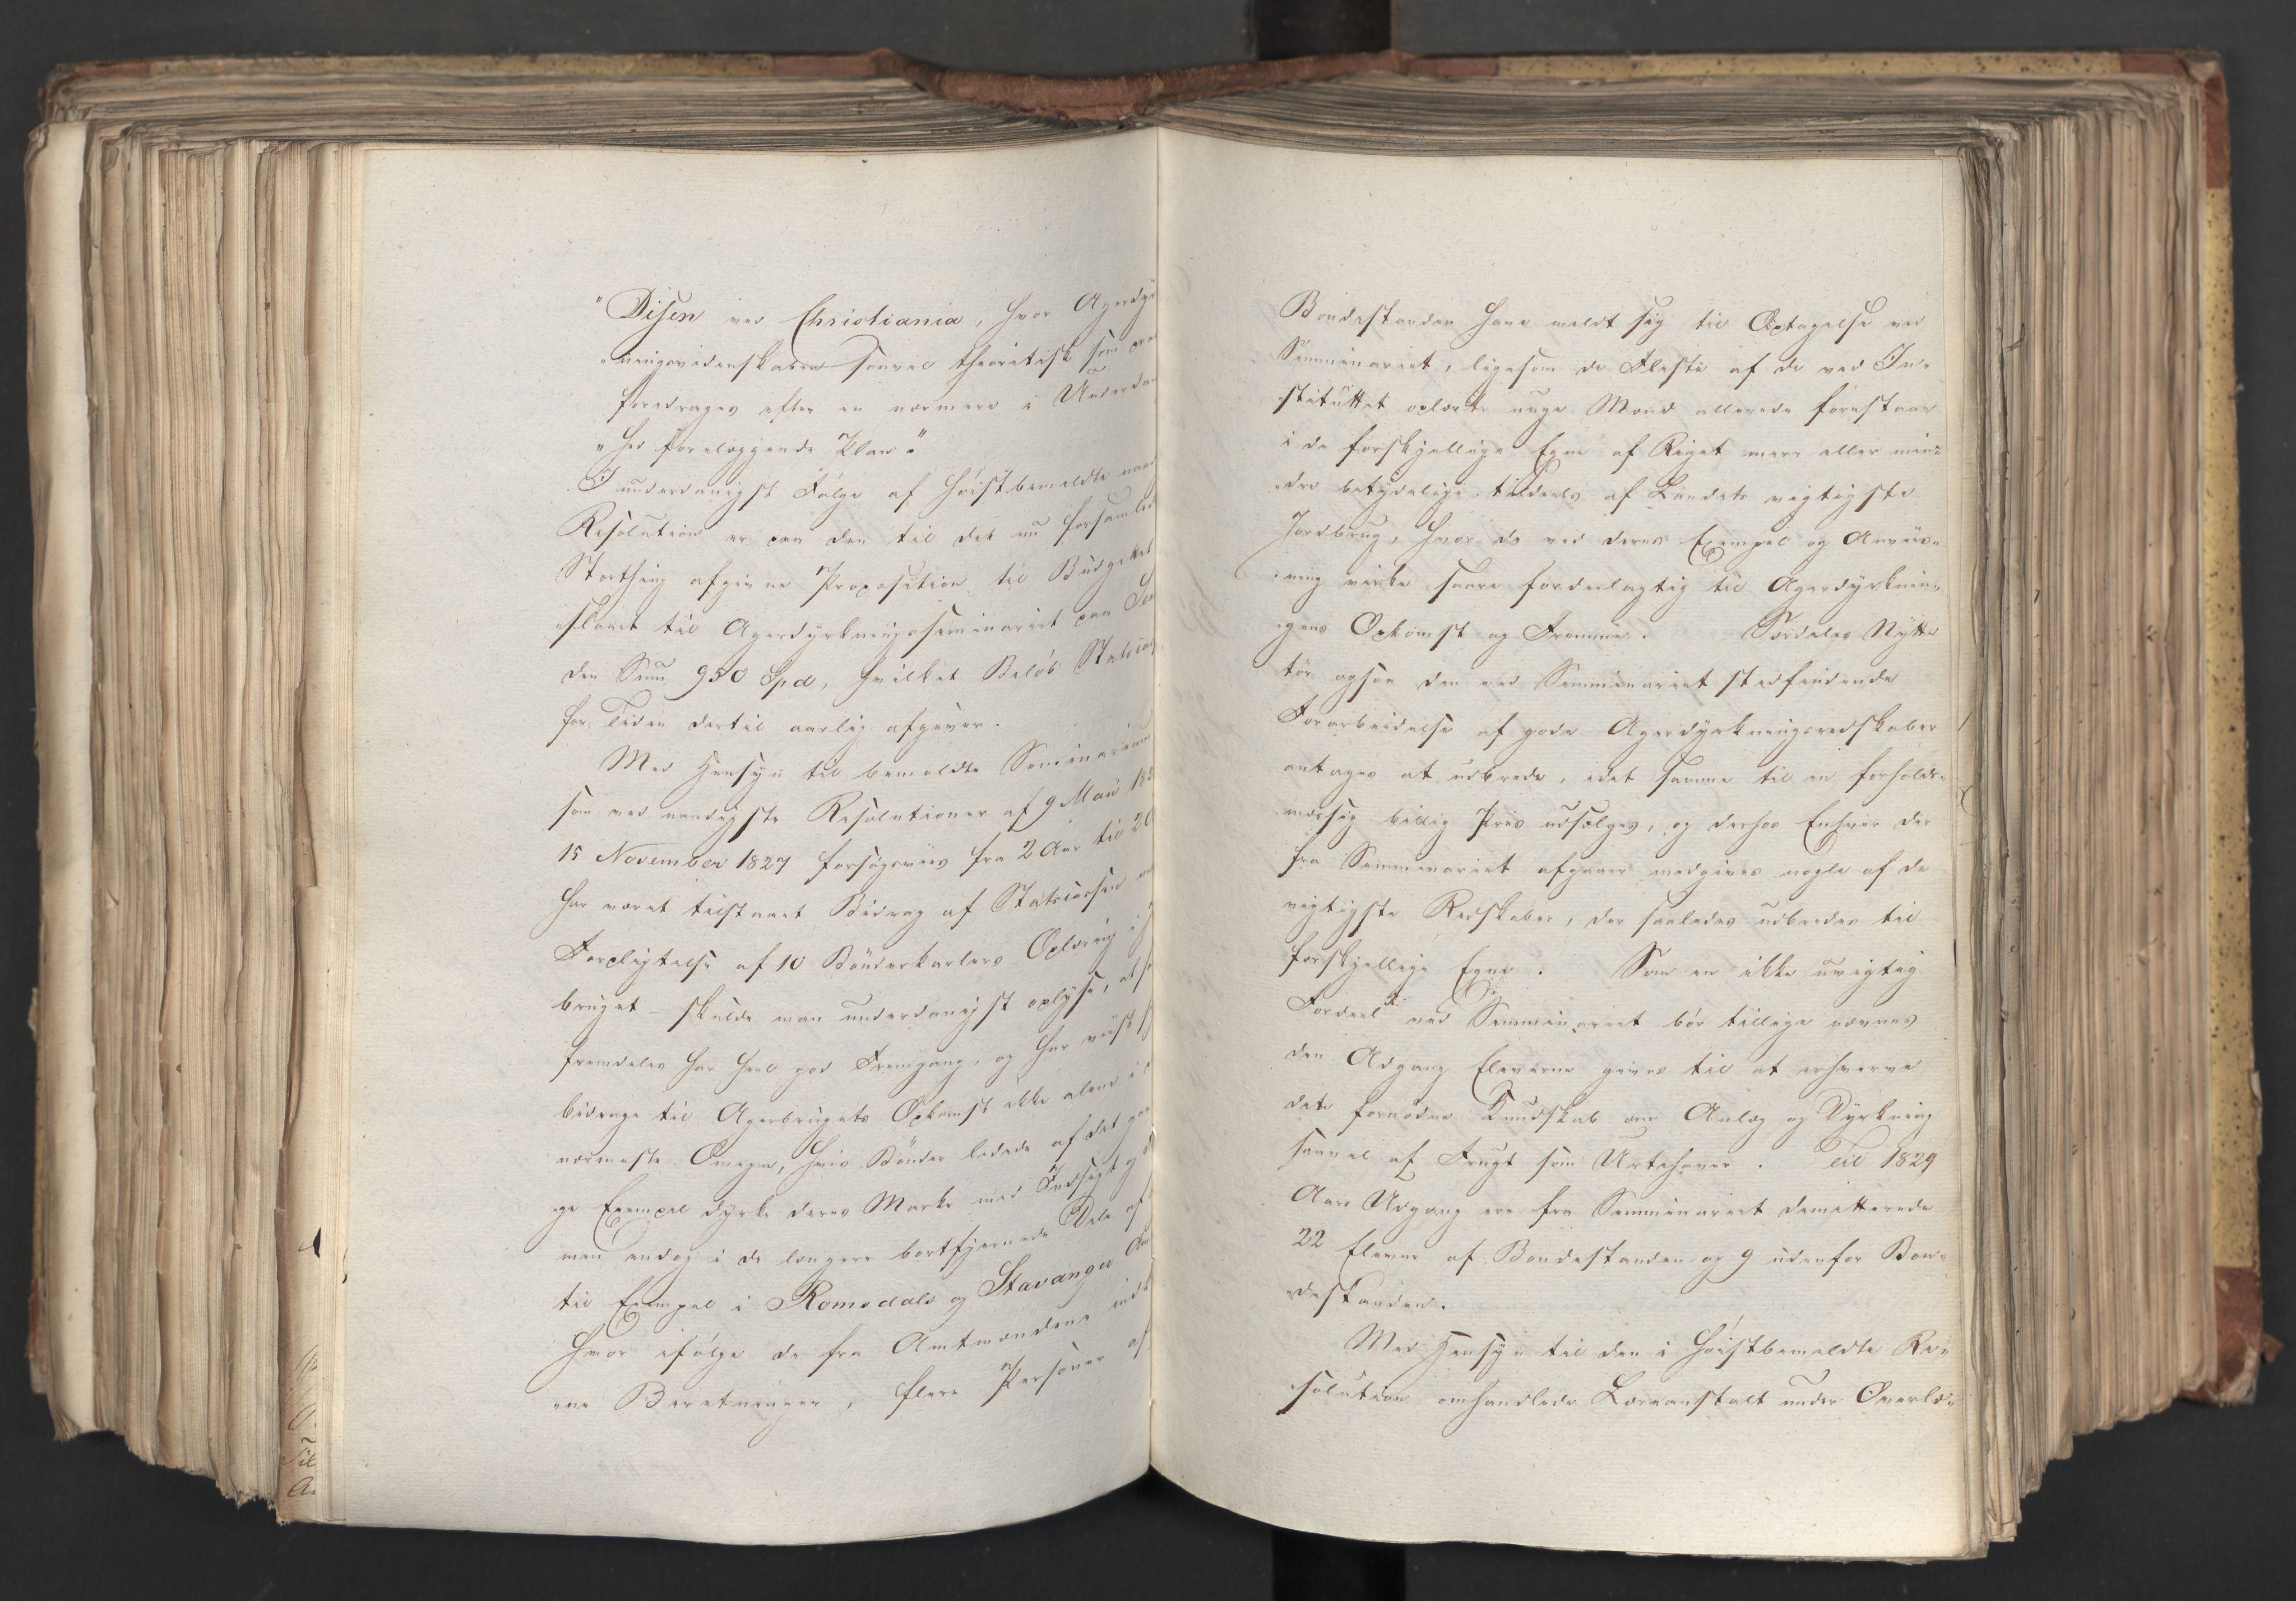 "Disen ved Christiania, hvor Agerdyr
"ningsvidenskaben saavel theoretisk som pra
foredrages efter en nærmere i Underdan
"hed forelæggende Plan".
I underdanigst Følge af høistbemeldte naad
Resolution er paa den til det nu forsamled
Storthing afgivne Proposition til Budgettet
slaaet til Agerdyrkningsseminariet paa
den Sum 950 Spd, hvilket Beløb Statscas
for Tiden dertil aarlig afgiver.
Med Hensyn til bemeldte Seminarium
som ved naadigste Resolutioner af 9 Mai 182
15 November 1827 forsøgsviis fra 2 Aar til
har været tilstaaet Bidrag af Statscassen
Forpligtelse af 10 Bønderkarlers Oplæring i J
bruget - skulde man underdanigst oplyse, at
fremdeles har havt god Fremgang, og har viist
bidrage til Agerbrugets Opkomst ikke alene i
nærmeste Omegn, hvis Bønder ledede af det
ge Exempel dyrke deres Marke med Indsigt og
men endog i de længere bortfjernede Dele af
til Exempel i Romsdals og Stavanger Am
hvor ifølge de fra Amtmændene ind
ne Beretninger, flere Personer af
Bondestanden have meldt sig til Optagelse ved
Semminariet, ligesom de Fleste af de ved In-
stituttet oplærte unge Mænd allerede forestaar
i de forskjellige Egne af Riget mere eller min-
dre betydelige, tildeels af Landets vigtigste
Jordbrug, hvor de ved deres Exempel og Anviis-
ning virke saare fordeelagtig til Agerdyrknin-
gens Opkomst og Fremme. Særdeles Nytte
tør ogsaa den ved Semminariet stedfindende
Forarbeidelse af gode Agerdyrkningsredskaber
antages at udbrede, idet samme til en forholds-
mæssig billig Priis udsælges, og derhos Enhver der
fra Semminariet afgaaer medgives nogle af de
vigtigste Redskaber, der saaledes udbredes til
forskjellige Egne. Som en ikke uvigtig
Fordeel ved Semminariet bør tillige nævnes
den Adgang Eleverne gives til at erhverve
det fornødne Kundskab om Anlæg og Dyrkning
saavel af Frugt som Urtehaver. Til 1829
Aars Udgang ere fra Semminariet demitterede
22 Elever af Bondestanden og 9 udenfor Bon-
destanden.
Med Hensyn til den i høistbemeldte Re-
solution omhandlede Læreanstalt under Overlæ-